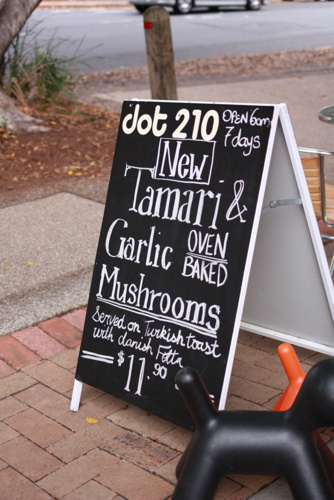 dot 210 OPEN 6am
7 days
New
Tamari &
Garlic OVEN
BAKED
Mushrooms
Served on Turkish toast
with danish Fetta
$11.90